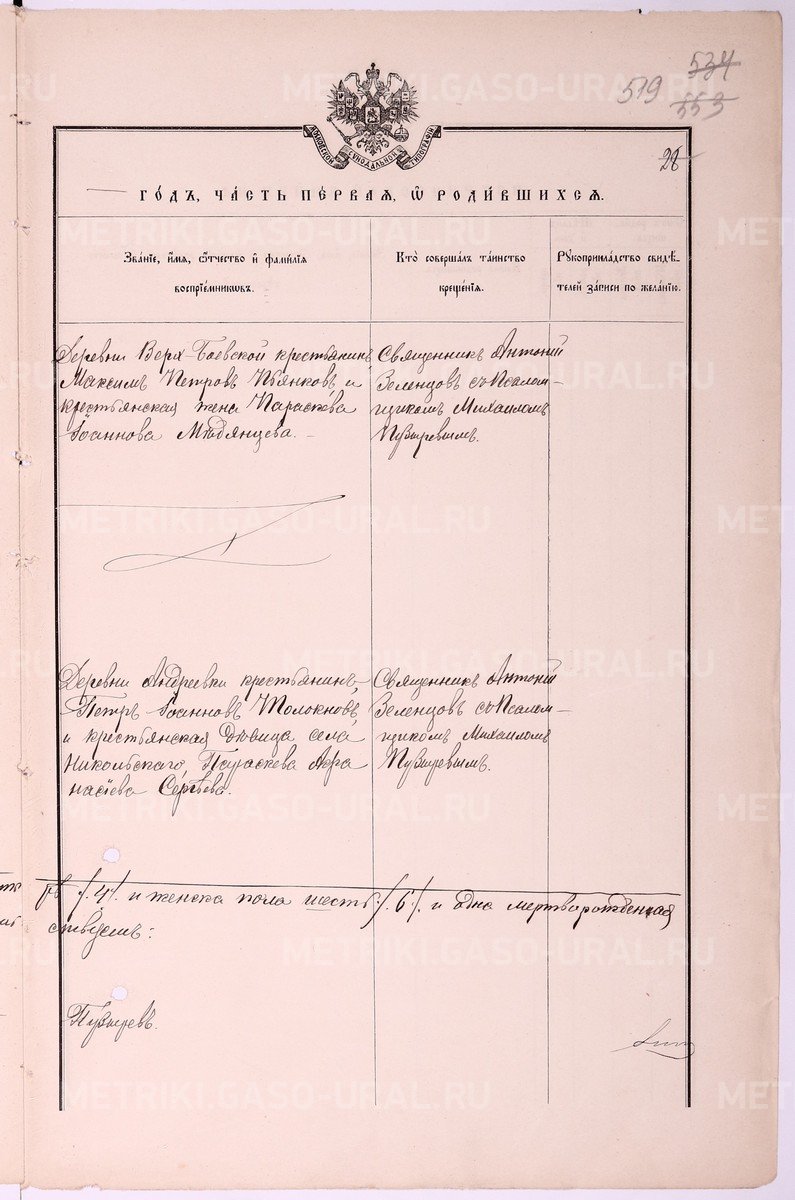 534
519 553
28
МОСКОВСКОЙ СѴНОДАЛЬНОЙ ТИПОГРАФІИ
ГО́ДЪ, ЧА́СТЬ ПЕ́РВАЯ, Ѡ҆ РОДИ́ВШИХСЯ.
Зва́ніе, и҆́мя, ѻ҆́тчество и҆ фами́лія
воспріе́мникѡвъ.
Кто̀ соверша́лъ та́инство
креще́нія.
Рꙋкоприкла́дство свидѣ́-
телей за́писи по жела́нію.
Деревни Верх-Боевской крестьянинъ
Максимъ Петровъ и
крестьянская жена Параскева
Іоаннова Мѣдянцева.
Священникъ Антоній
Зеленцовъ съ Псалом-
щикомъ Михаиломъ
Пузыревымъ.
Деревни Андреевки крестьянинъ
Петръ Іоанновъ Толокновъ
и крестьянская дѣвица села
Никольскаго Параскева Афа
насіева Сергѣева.
Священникъ Антоній
Зеленцовъ съ Псалом-
щикомъ Михаиломъ
Пузыревымъ.
/4/. и женска пола шесть /6/. и одна мертворожденная
ствуемъ:
Пузыревъ.
METRIKI.GASO-URAL.RU